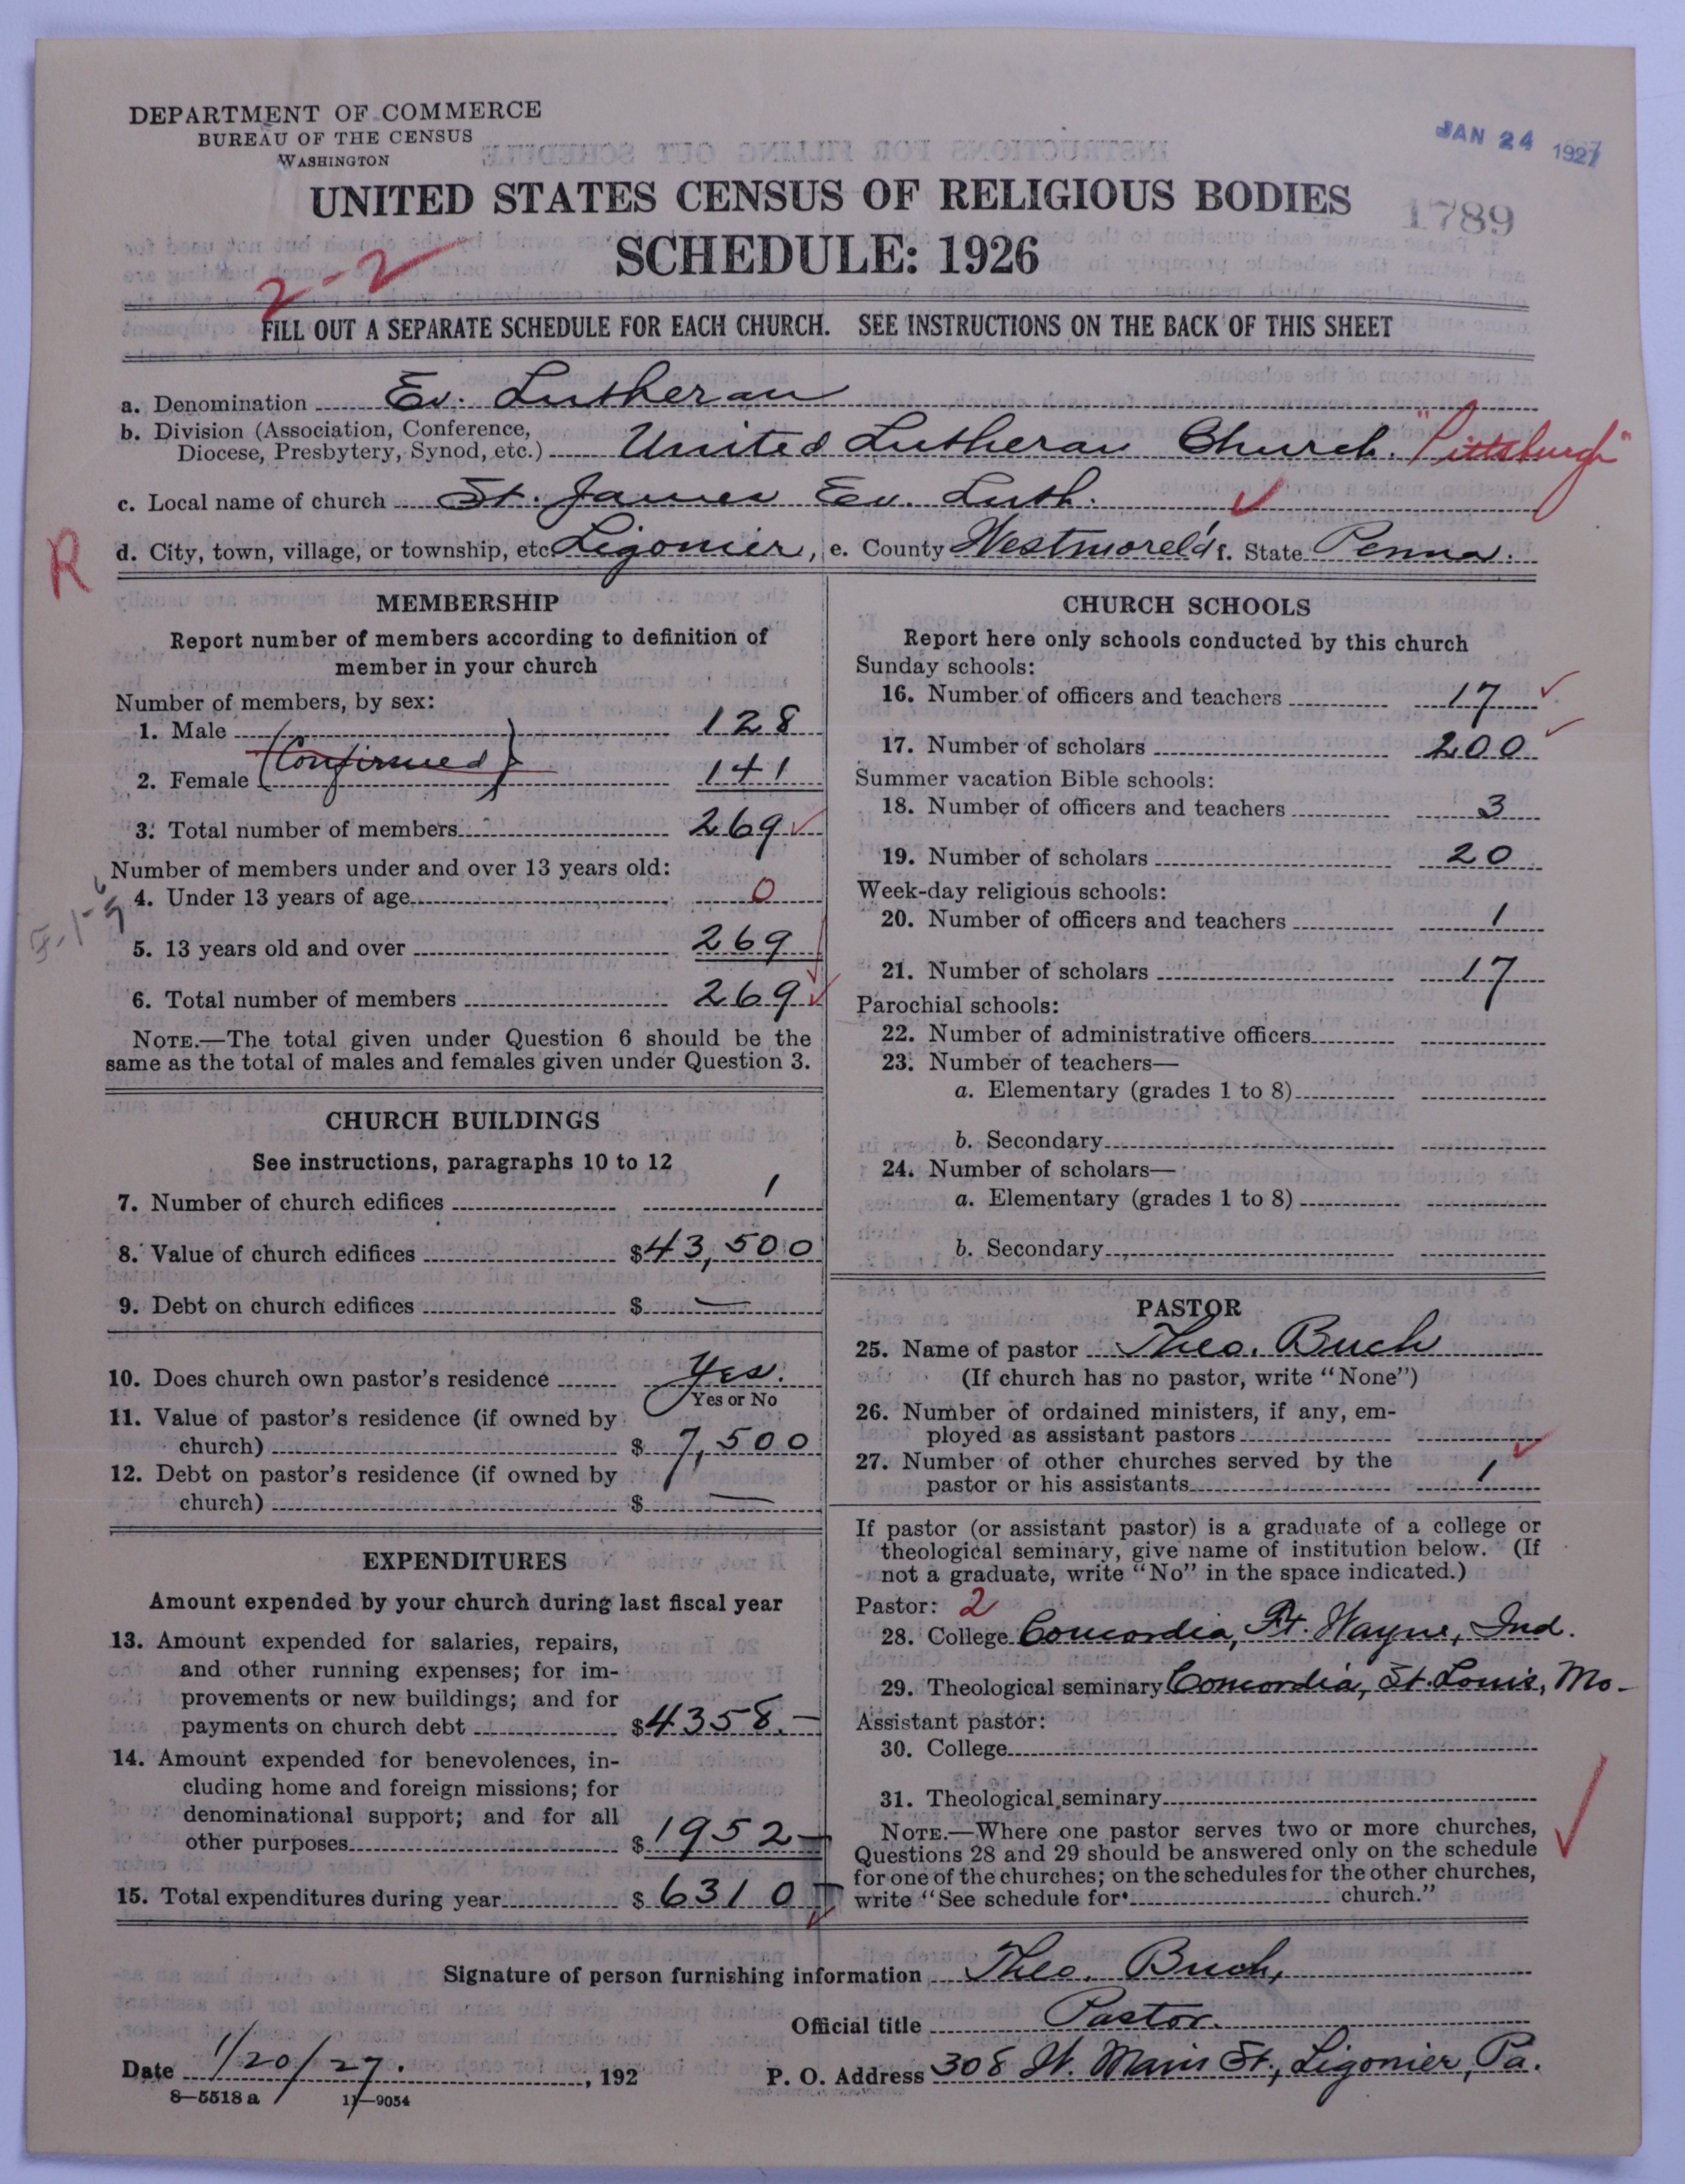 DEPARTMENT OF COMMERCE
BUREAU OF THE CENSUS
WASHINGTON
JAN 24 1927
UNITED STATES CENSUS OF RELIGIOUS BODIES
1789
SCHEDULE: 1926
2-2
FILL OUT A SEPARATE SCHEDULE FOR EACH CHURCH. SEE INSTRUCTIONS ON THE BACK OF THIS SHEET
a. Denomination Ev. Lutheran
b. Division (Association, Conference,
Diocese, Presbytery, Synod, etc.) United Lutheran Church. "Pittsburgh"
c. Local name of church St. James Ev. Luth.
R
d. City, town, village, or township, etc. Ligonier, e. County Westmorel'd f. State Penna.
MEMBERSHIP
Report number of members according to definition of
member in your church
Number of members, by sex:
1. Male 128
(Confirmed)
2. Female 141
3. Total number of members 269
Number of members under and over 13 years old:
4. Under 13 years of age 0
5. 13 years old and over 269
6. Total number of members 269
NOTE.—The total given under Question 6 should be the
same as the total of males and females given under Question 3.
CHURCH BUILDINGS
See instructions, paragraphs 10 to 12
7. Number of church edifices 1
8. Value of church edifices $43,500
9. Debt on church edifices $ —
10. Does church own pastor's residence Yes.
Yes or No
11. Value of pastor's residence (if owned by
church) $ 7,500
12. Debt on pastor's residence (if owned by
church) $ —
EXPENDITURES
Amount expended by your church during last fiscal year
13. Amount expended for salaries, repairs,
and other running expenses; for im-
provements or new buildings; and for
payments on church debt $4358.—
14. Amount expended for benevolences, in-
cluding home and foreign missions; for
denominational support; and for all
other purposes $1952—
15. Total expenditures during year $ 6310—
CHURCH SCHOOLS
Report here only schools conducted by this church
Sunday schools:
16. Number of officers and teachers 17
17. Number of scholars 200
Summer vacation Bible schools:
18. Number of officers and teachers 3
19. Number of scholars 20
Week-day religious schools:
20. Number of officers and teachers 1
21. Number of scholars 17
Parochial schools:
22. Number of administrative officers
23. Number of teachers—
a. Elementary (grades 1 to 8)
b. Secondary
24. Number of scholars—
a. Elementary (grades 1 to 8)
b. Secondary
PASTOR
25. Name of pastor Theo. Buch
(If church has no pastor, write "None")
26. Number of ordained ministers, if any, em-
ployed as assistant pastors
27. Number of other churches served by the
pastor or his assistants 1
If pastor (or assistant pastor) is a graduate of a college or
theological seminary, give name of institution below. (If
not a graduate, write "No" in the space indicated.)
Pastor: 2
28. College Concordia, Ft. Wayne, Ind.
29. Theological seminary Concordia, St. Louis, Mo.
Assistant pastor:
30. College
31. Theological seminary
NOTE.—Where one pastor serves two or more churches,
Questions 28 and 29 should be answered only on the schedule
for one of the churches; on the schedules for the other churches,
write "See schedule for church."
Signature of person furnishing information Theo. Buch,
Official title Pastor.
Date 1/20/27. , 192
P. O. Address 308 W. Main St., Ligonier, Pa.
8—5518 a 11—9054